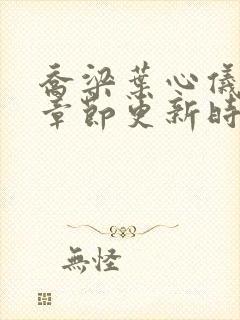 喬梁葉心儀
章節更新時
無怪